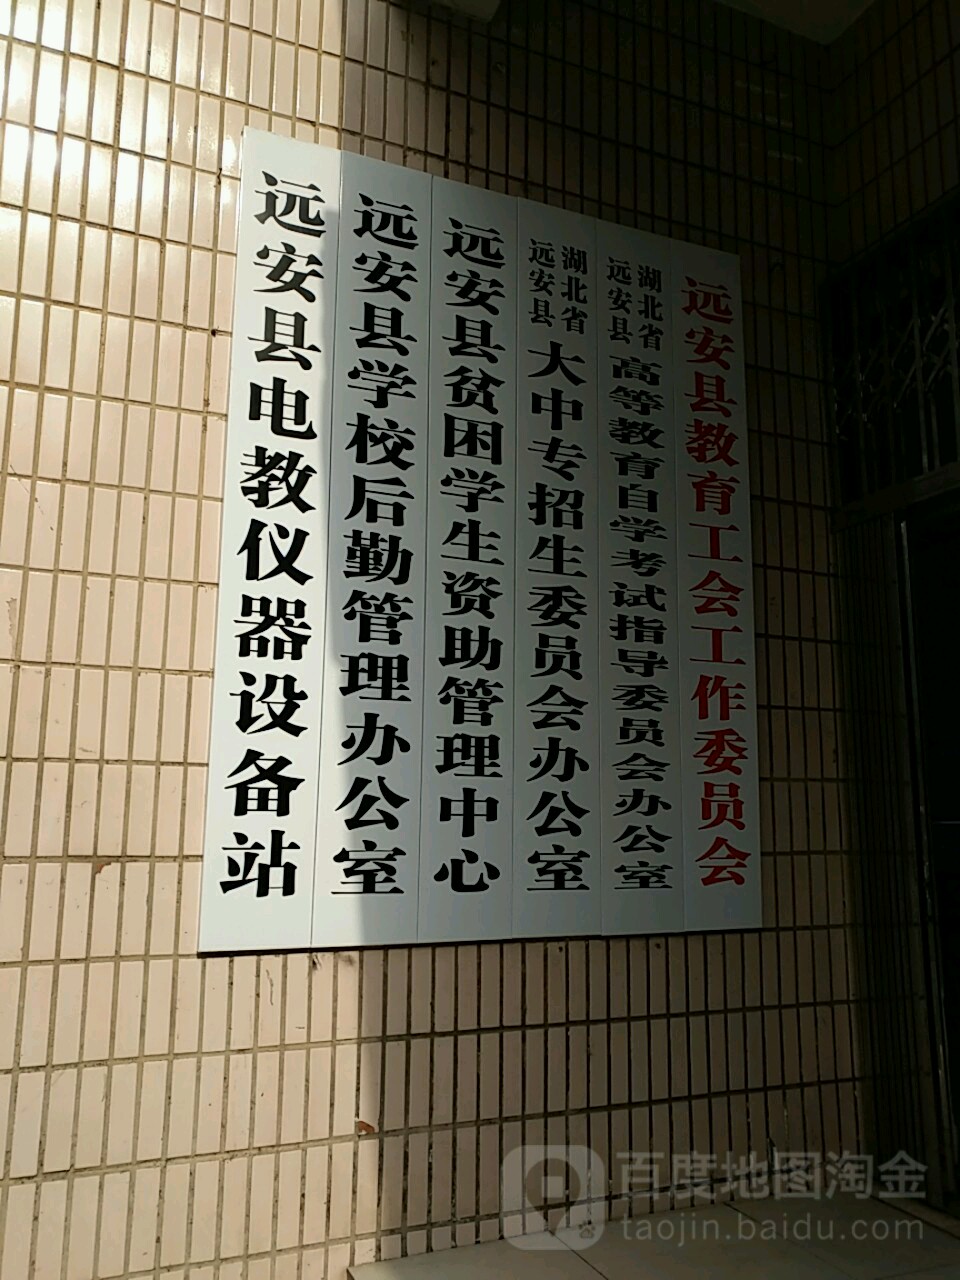 远安县电教仪器设备站
远安县学校后勤管理办公室
远安县贫困学生资助管理中心
湖北省
远安县
大中专招生委员会办公室
湖北省
远安县
高等教育自学考试指导委员会办公室
远安县教育工会工作委员会
百度地图淘金
taojin.baidu.com